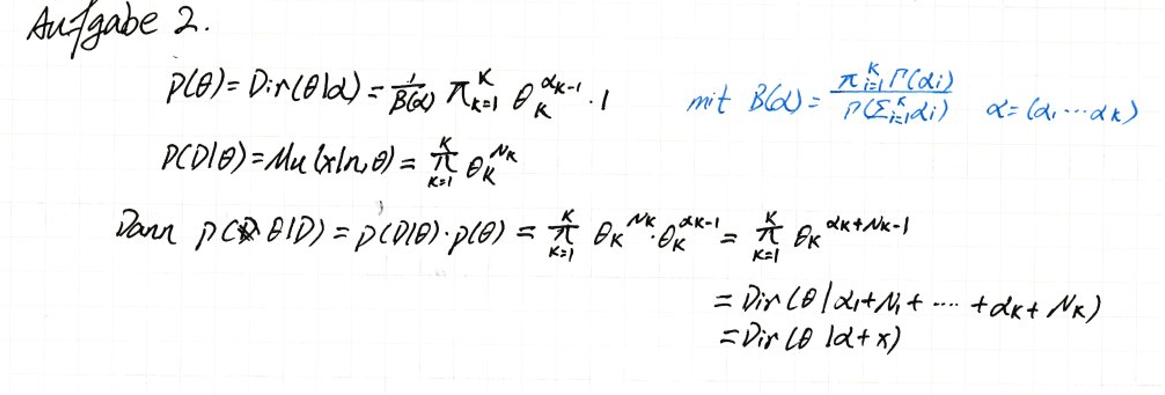 Aufgabe 2.
P(θ) = Dir(θ|α) = 1/B(α) π_{k=1}^{K} θ_K^{α_K-1} · 1 mit B(α) = π_{i=1}^{K} Γ(αi) / Γ(Σ_{i=1}^{K} αi) α = (α1 ... αK)
P(D|θ) = Mu(x|n,θ) = π_{K=1}^{K} θ_K^{N_K}
Dann p(θ|D) = p(D|θ)·p(θ) = π_{K=1}^{K} θ_K^{N_K} · θ_K^{α_K-1} = π_{K=1}^{K} θ_K^{α_K+N_K-1}
= Dir(θ|α1+N1+ .... +αK+NK)
= Dir(θ|α+x)